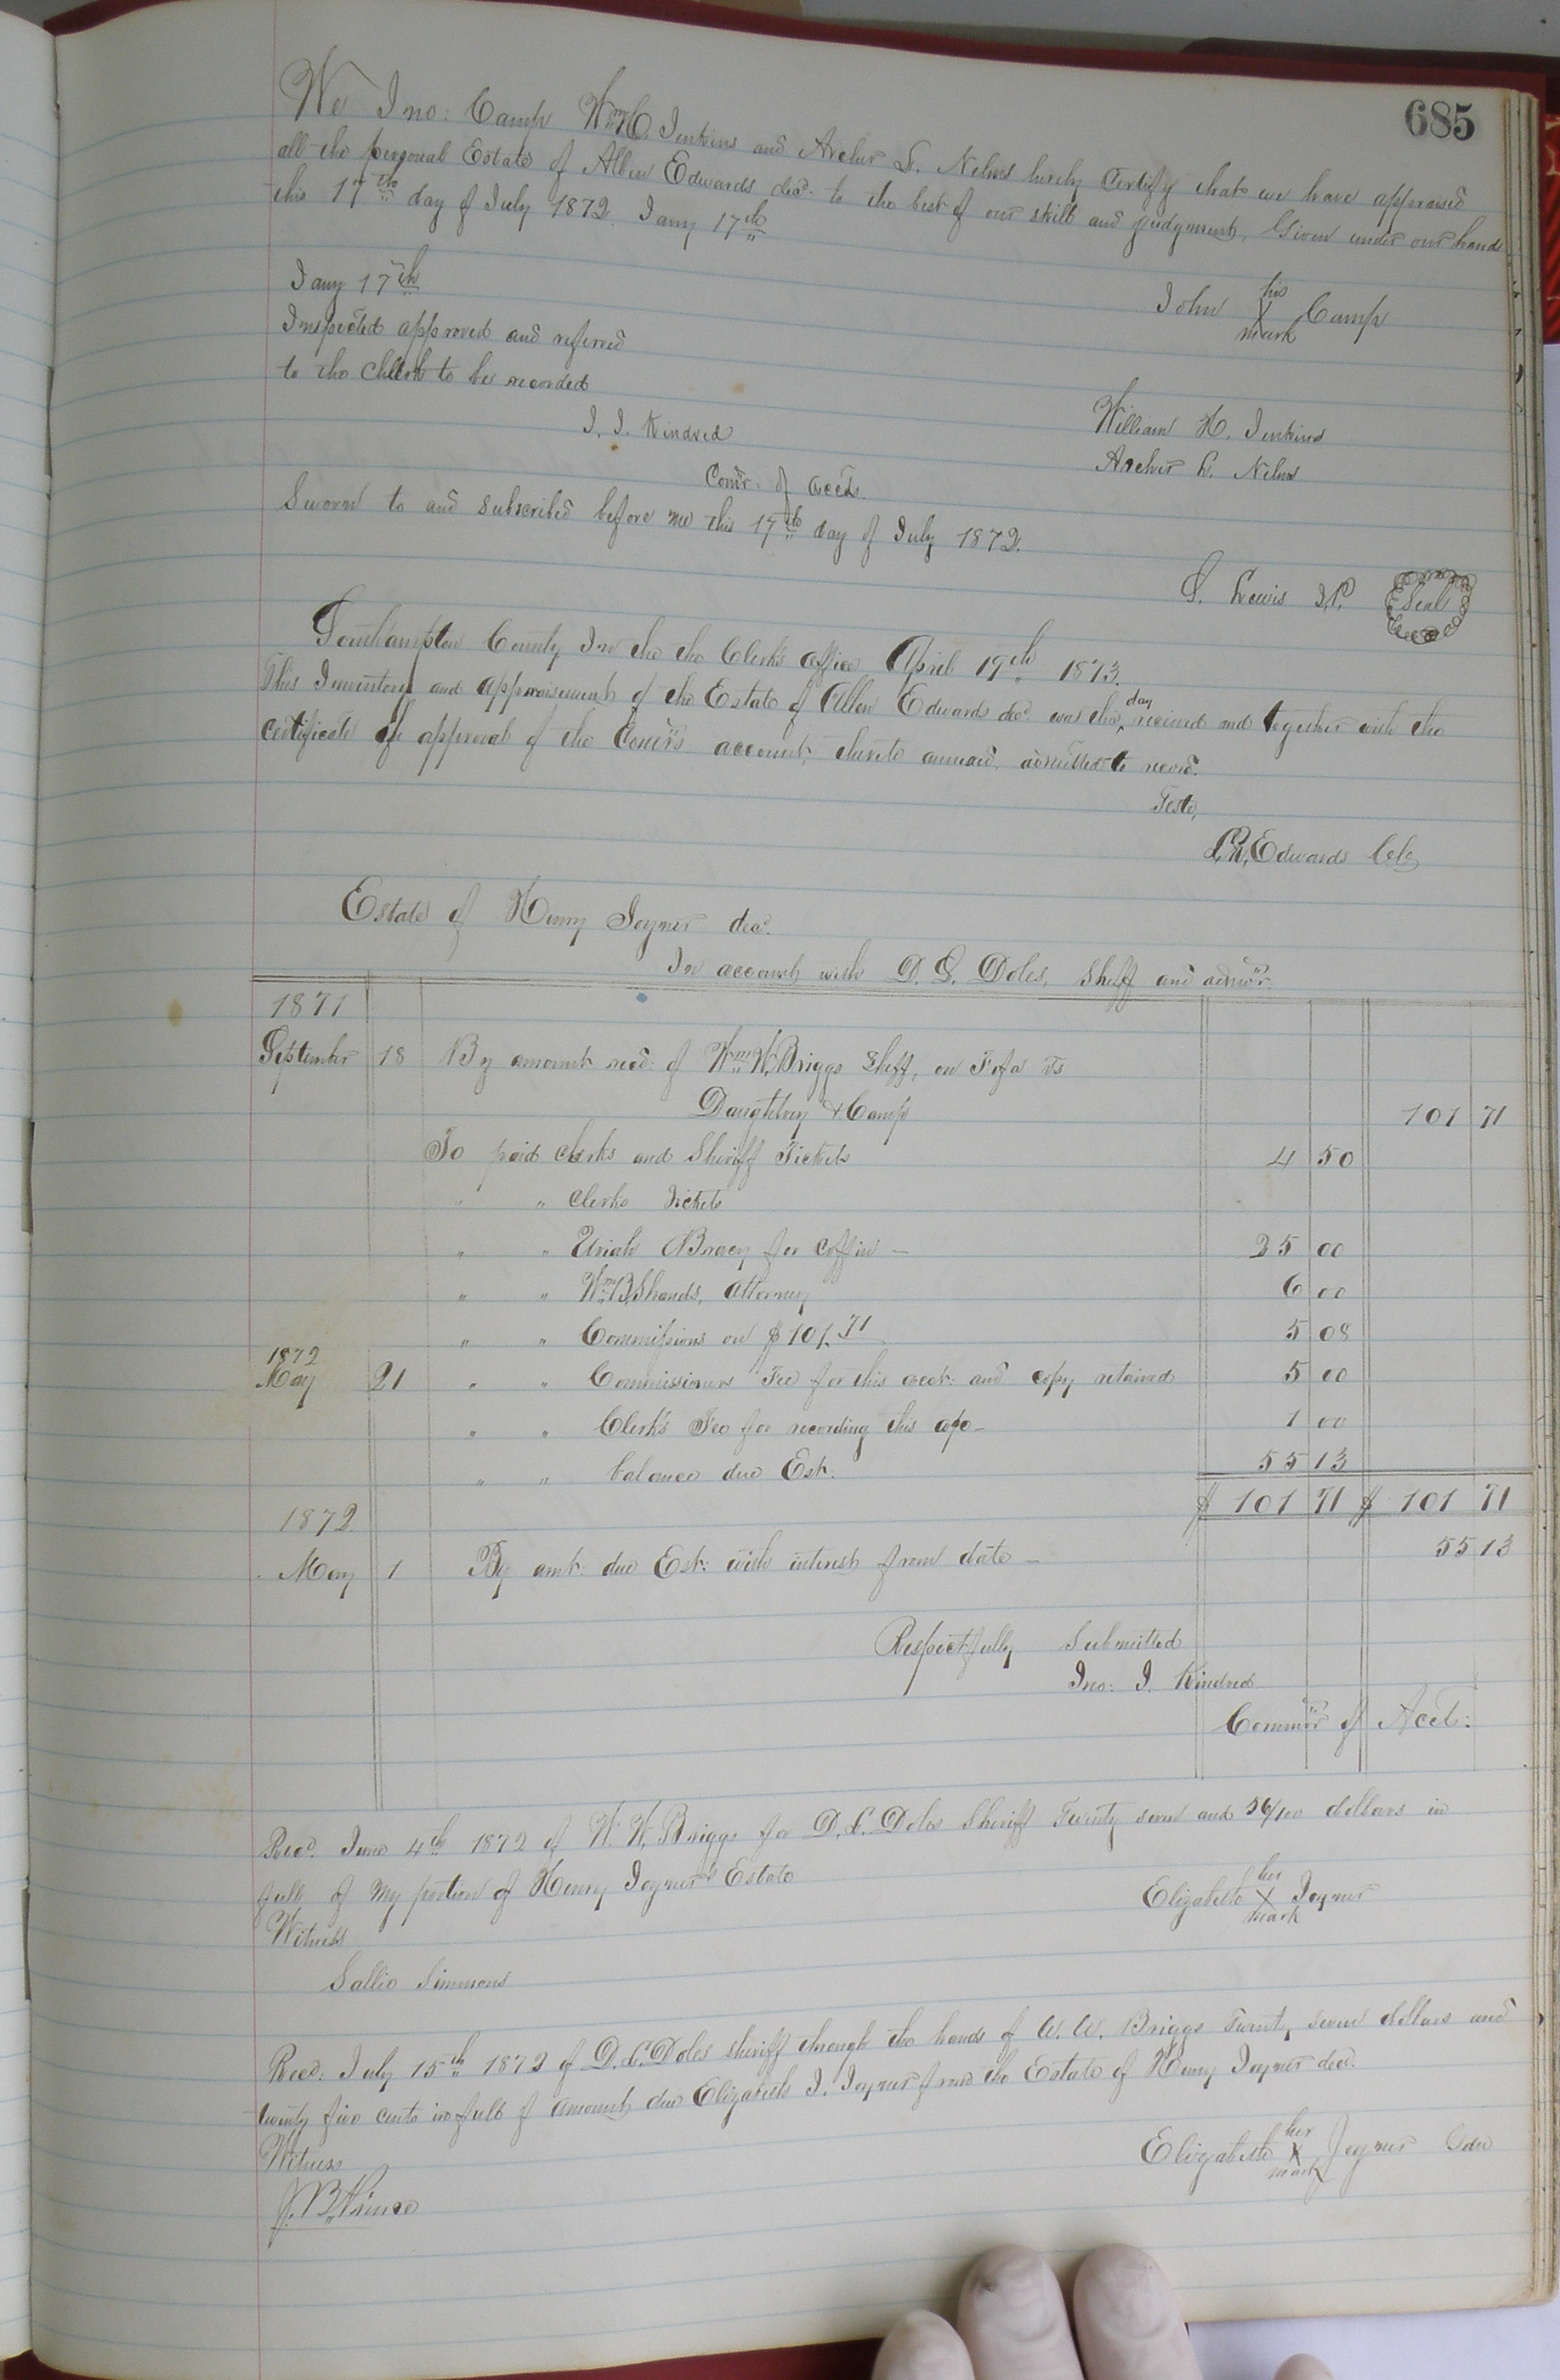 685
We Jno: Camp Wm H. Jenkins and Archer L. Nelms hereby Certify that we have appraised
all the personal Estate of Allen Edwards decd. to the best of our skill and judgment, Given under our hands
this 17th day of July 1872. Jany 17th
Jany 17th
John his X mark Camp
Inspected approved and referred
to the Clerk to be recorded
William H. Jenkins
J. J. Kindred
Archer L. Nelms
Comr. of accts.
Sworn to and subscribed before me this 17th day of July 1872.
S. Lewis J.P. Seal
Southampton County In the the Clerk's office April 19th 1873.
This Inventory and appraisement of the Estate of Allen Edwards decd. was this day received and together with the
certificate of approval of the Comr's account, thereto annexed, admitted to record.
Teste,
L. R. Edwards C.C.
Estate of Henry Joyner decd.
In account with D. S. Doles, Shff and admor.
1871
September 18 By amount recd. of Wm W. Briggs Shff, on Fi fa vs
Daughtrey & Camp 101 71
To paid Clerks and Sheriff Tickets 4 50
" " Clerks Tickets
" " Uriah Bracy for Coffin — 25 00
" " Wm B. Shands, Attorney 6 00
" " Commissions on $101.71 5 08
1872
May 21 " " Commissioners Fee for this acct: and copy retained 5 00
" " Clerk's Fee for recording this a/c — 1 00
" " balance due Est. 55 13
$ 101 71 $ 101 71
1872
May 1 By amt. due Est: with interest from date — 55 13
Respectfully Submitted
Jno: J. Kindred
Commr of Acct:
Recd. June 4th 1872 of W. W. Briggs for D. S. Doles Sheriff Twenty seven and 56/100 dollars in
full of my portion of Henry Joyner's Estate
Elizabeth her X mark Joyner
Witness
Sallie Simmons
Recd: July 15th 1872 of D. S. Doles sheriff through the hands of W. W. Briggs Twenty seven dollars and
twenty five cents in full of amount due Elizabeth J. Joyner from the Estate of Henry Joyner decd.
Elizabeth her X mark Joyner
Witness
J. B. Prince